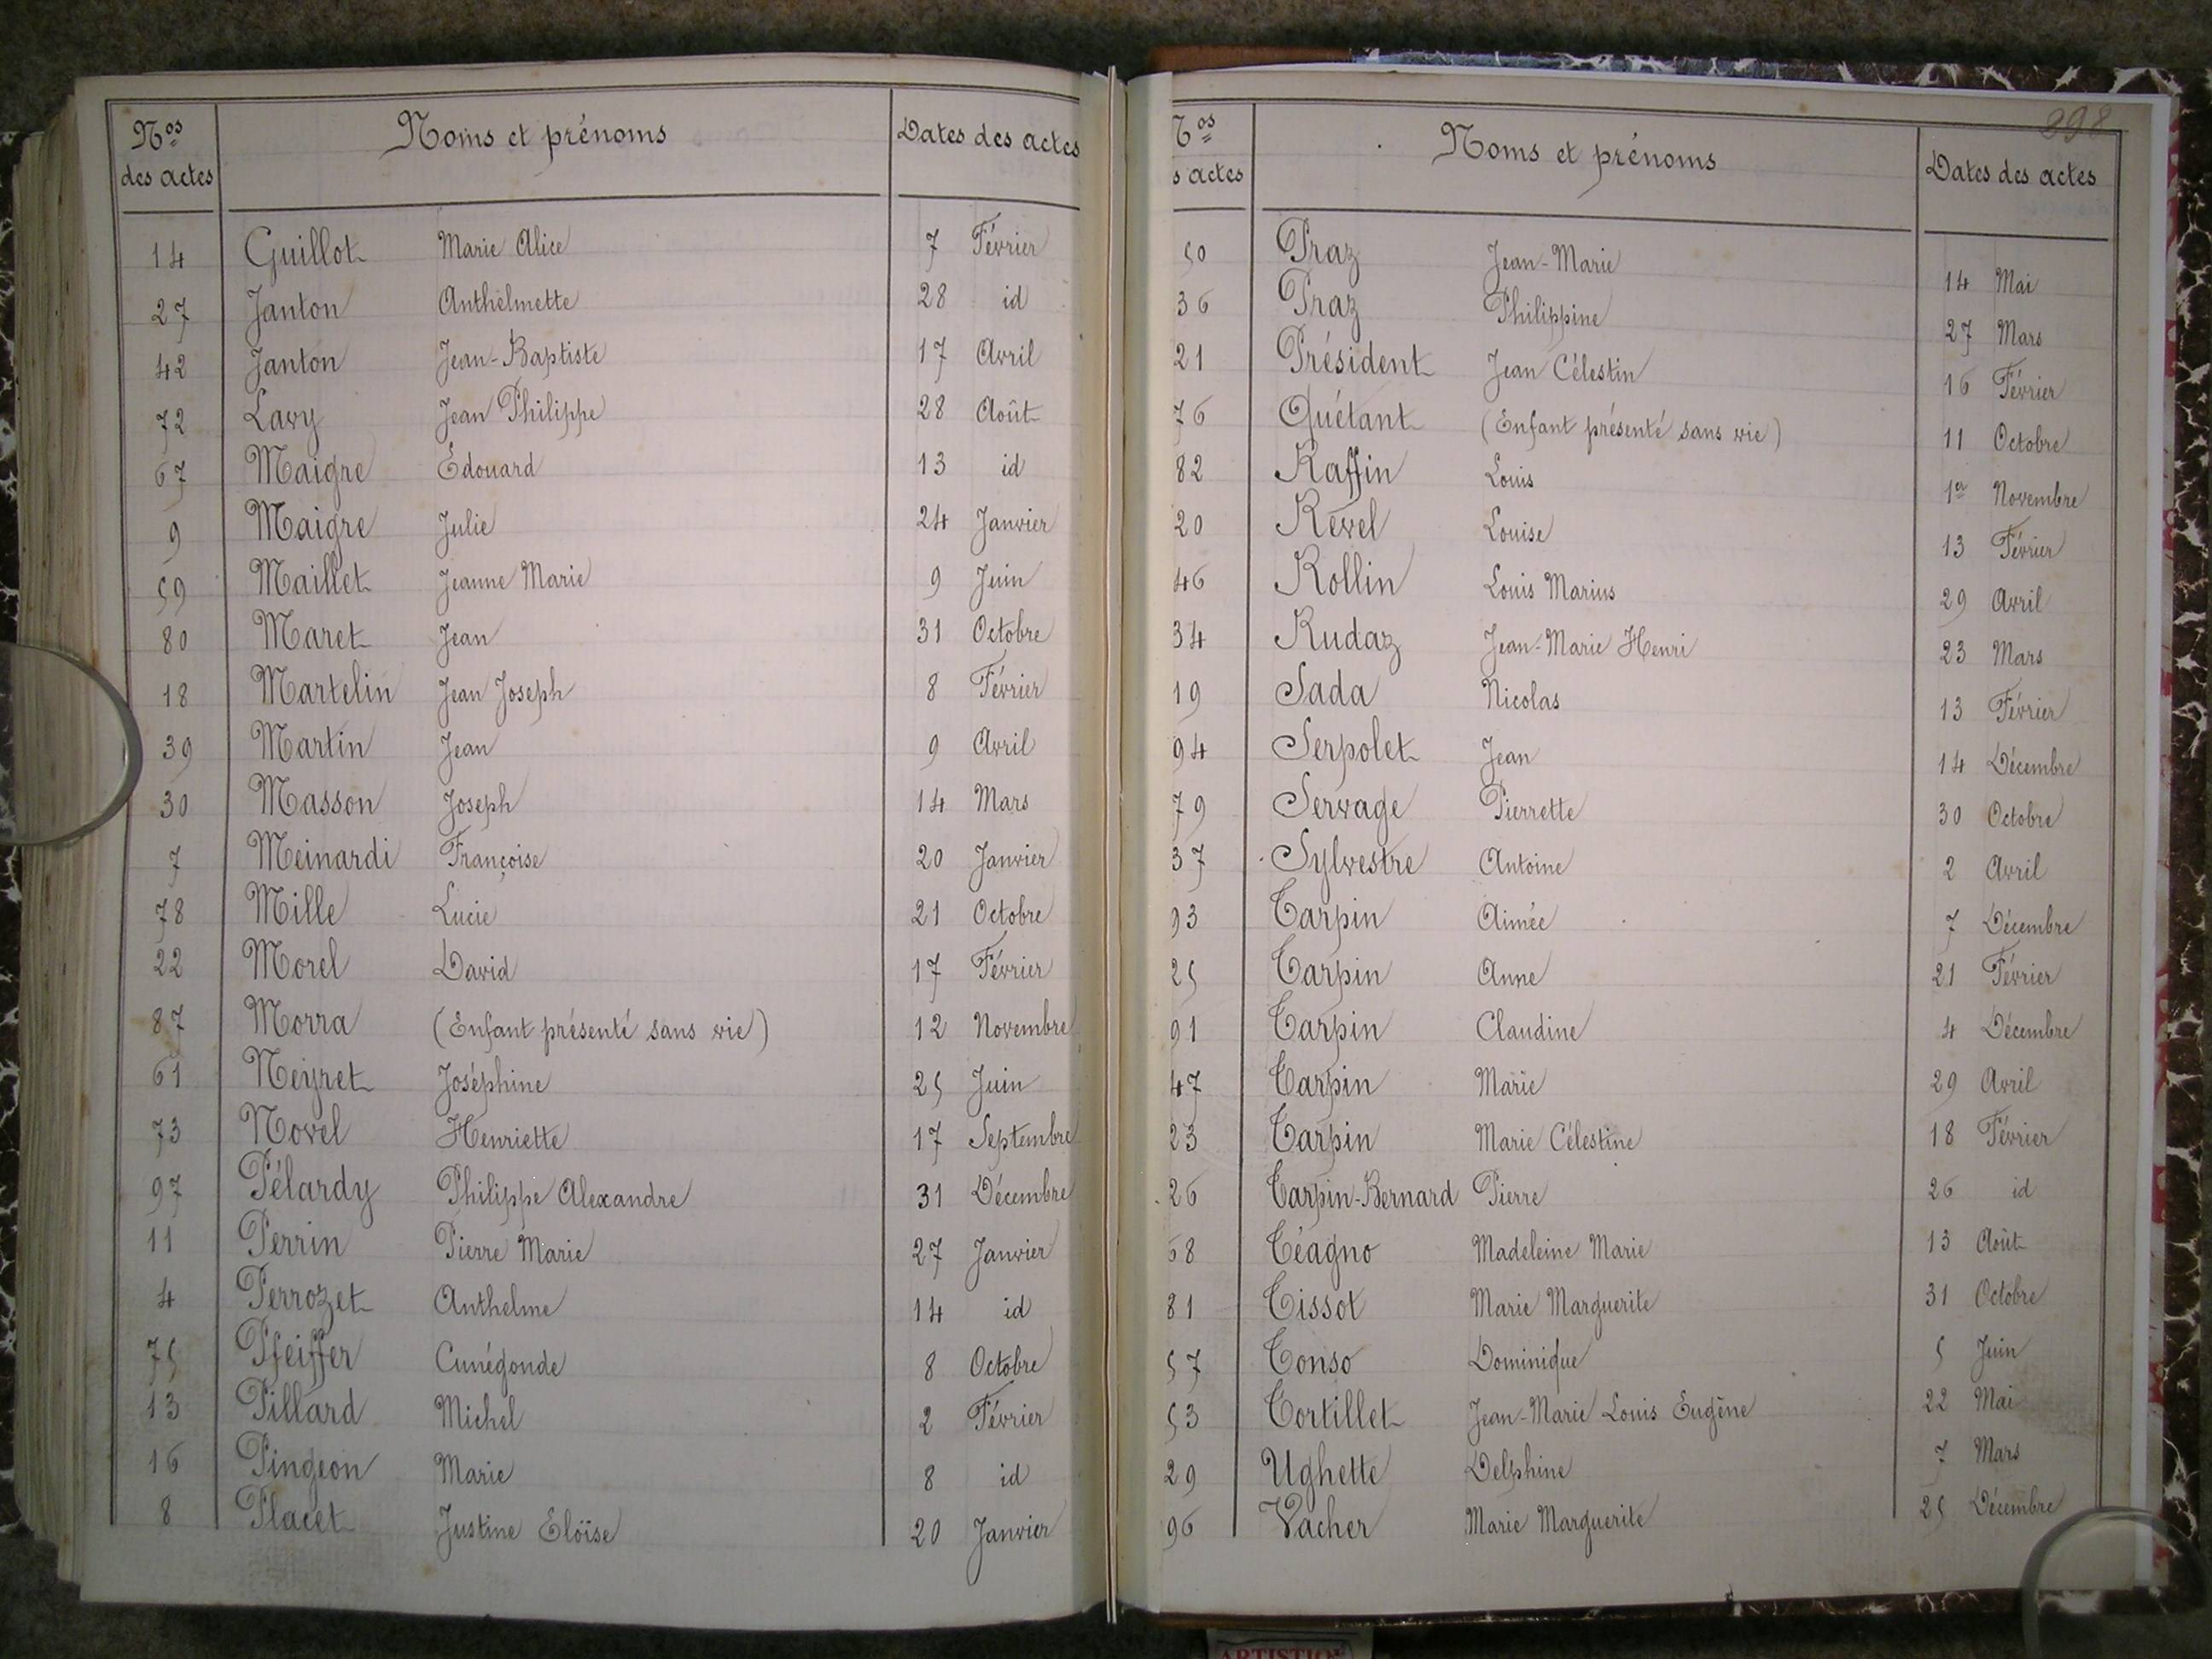 Nos des actes Noms et prénoms Dates des actes
14 Guillot Marie Alice 7 Février
27 Janton Anthelmette 28 id
42 Janton Jean-Baptiste 17 Avril
72 Lavy Jean Philippe 28 Août
67 Maigre Édouard 13 id
9 Maigre Julie 24 Janvier
59 Maillet Jeanne Marie 9 Juin
80 Maret Jean 31 Octobre
18 Martelin Jean Joseph 8 Février
39 Martin Jean 9 Avril
30 Masson Joseph 14 Mars
7 Meinardi Françoise 20 Janvier
78 Mille Lucie 21 Octobre
22 Morel David 17 Février
87 Morra (Enfant présenté sans vie) 12 Novembre
61 Neyret Joséphine 25 Juin
73 Novel Henriette 17 Septembre
97 Pélardy Philippe Alexandre 31 Décembre
11 Perrin Pierre Marie 27 Janvier
4 Perrozet Anthelme 14 id
75 Pfeiffer Cunégonde 8 Octobre
13 Pillard Michel 2 Février
16 Pingeon Marie 8 id
8 Placet Justine Eloïse 20 Janvier
298
Nos s actes Noms et prénoms Dates des actes
50 Praz Jean-Marie 14 Mai
36 Praz Philippine 27 Mars
21 Président Jean Célestin 16 Février
76 Quétant (Enfant présenté sans vie) 11 Octobre
82 Raffin Louis 1er Novembre
20 Revel Louise 13 Février
46 Rollin Louis Marius 29 Avril
34 Rudaz Jean-Marie Henri 23 Mars
19 Sada Nicolas 13 Février
94 Serpolet Jean 14 Décembre
79 Servage Pierrette 30 Octobre
37 Sylvestre Antoine 2 Avril
93 Tarpin Aimée 7 Décembre
25 Tarpin Anne 21 Février
91 Tarpin Claudine 4 Décembre
47 Tarpin Marie 29 Avril
23 Tarpin Marie Célestine 18 Février
26 Tarpin-Bernard Pierre 26 id
68 Téagno Madeleine Marie 13 Août
81 Tissot Marie Marguerite 31 Octobre
57 Tonso Dominique 5 Juin
53 Tortillet Jean-Marie Louis Eugène 22 Mai
29 Ughette Delphine 7 Mars
96 Vacher Marie Marguerite 25 Décembre